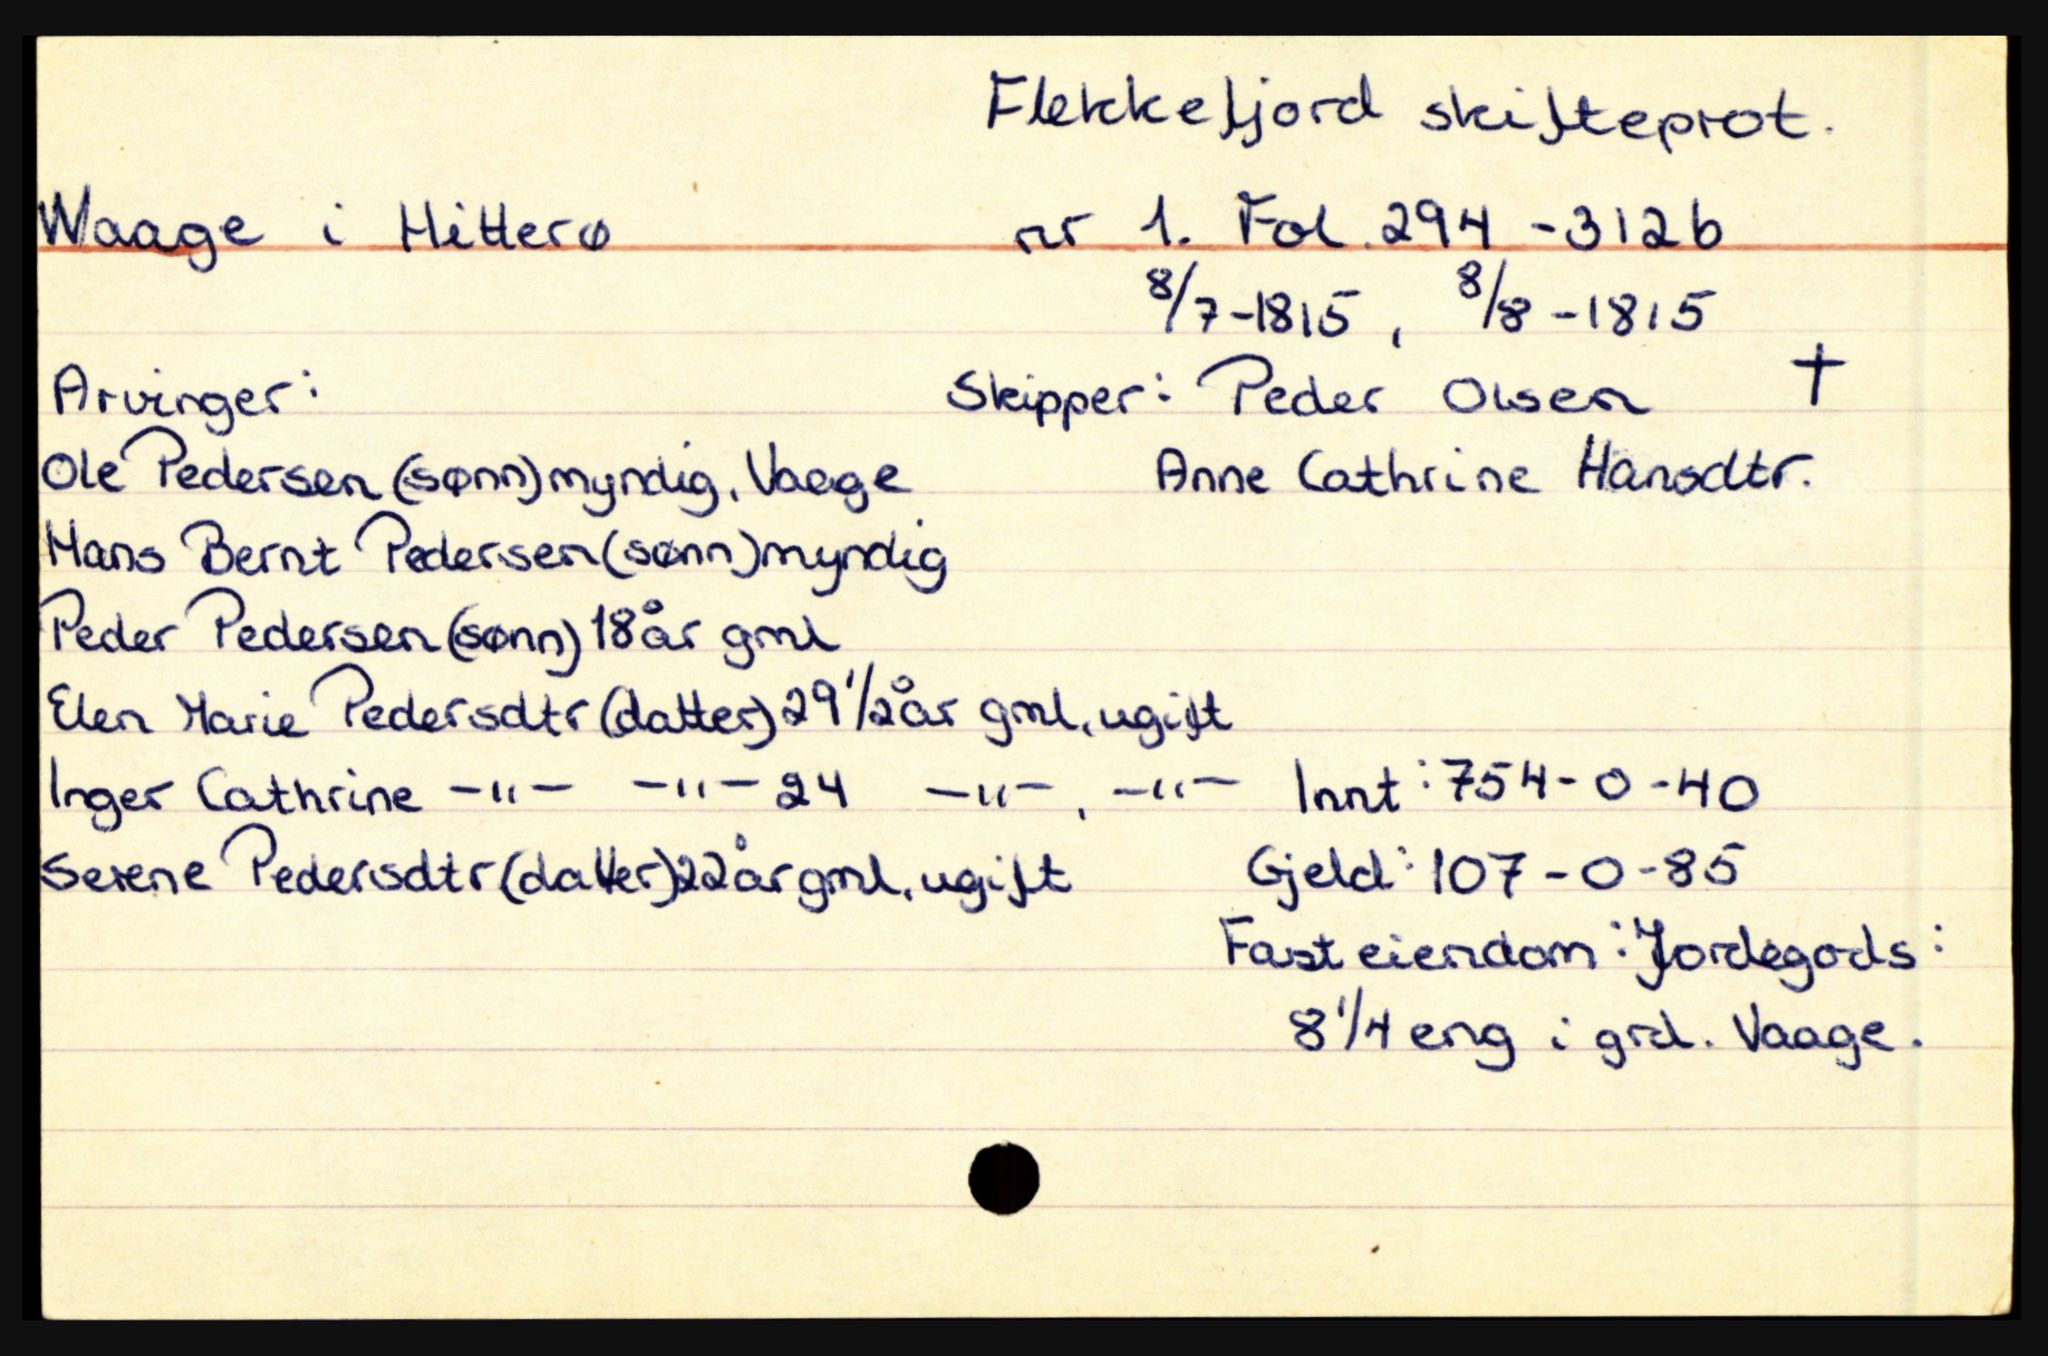 Flekkefjord skifteprot.
Waage i Hitterø nr 1. Fol. 294 - 312b
8/7-1815, 8/8-1815
Arvinger: Skipper: Peder Olsen †
Ole Pedersen (sønn) myndig, Vaage Anne Cathrine Hansdtr.
Hans Bernt Pedersen (sønn) myndig
Peder Pedersen (sønn) 18 år gml
Elen Marie Pedersdtr (datter) 29 1/2 år gml, ugift
Inger Cathrine -"- -"- 24 -"-, -"- Innt: 754-0-40
Serene Pedersdtr (datter) 22 år gml, ugift Gjeld: 107-0-85
Fast eiendom: Jordegods:
8 1/4 eng i grd. Vaage.